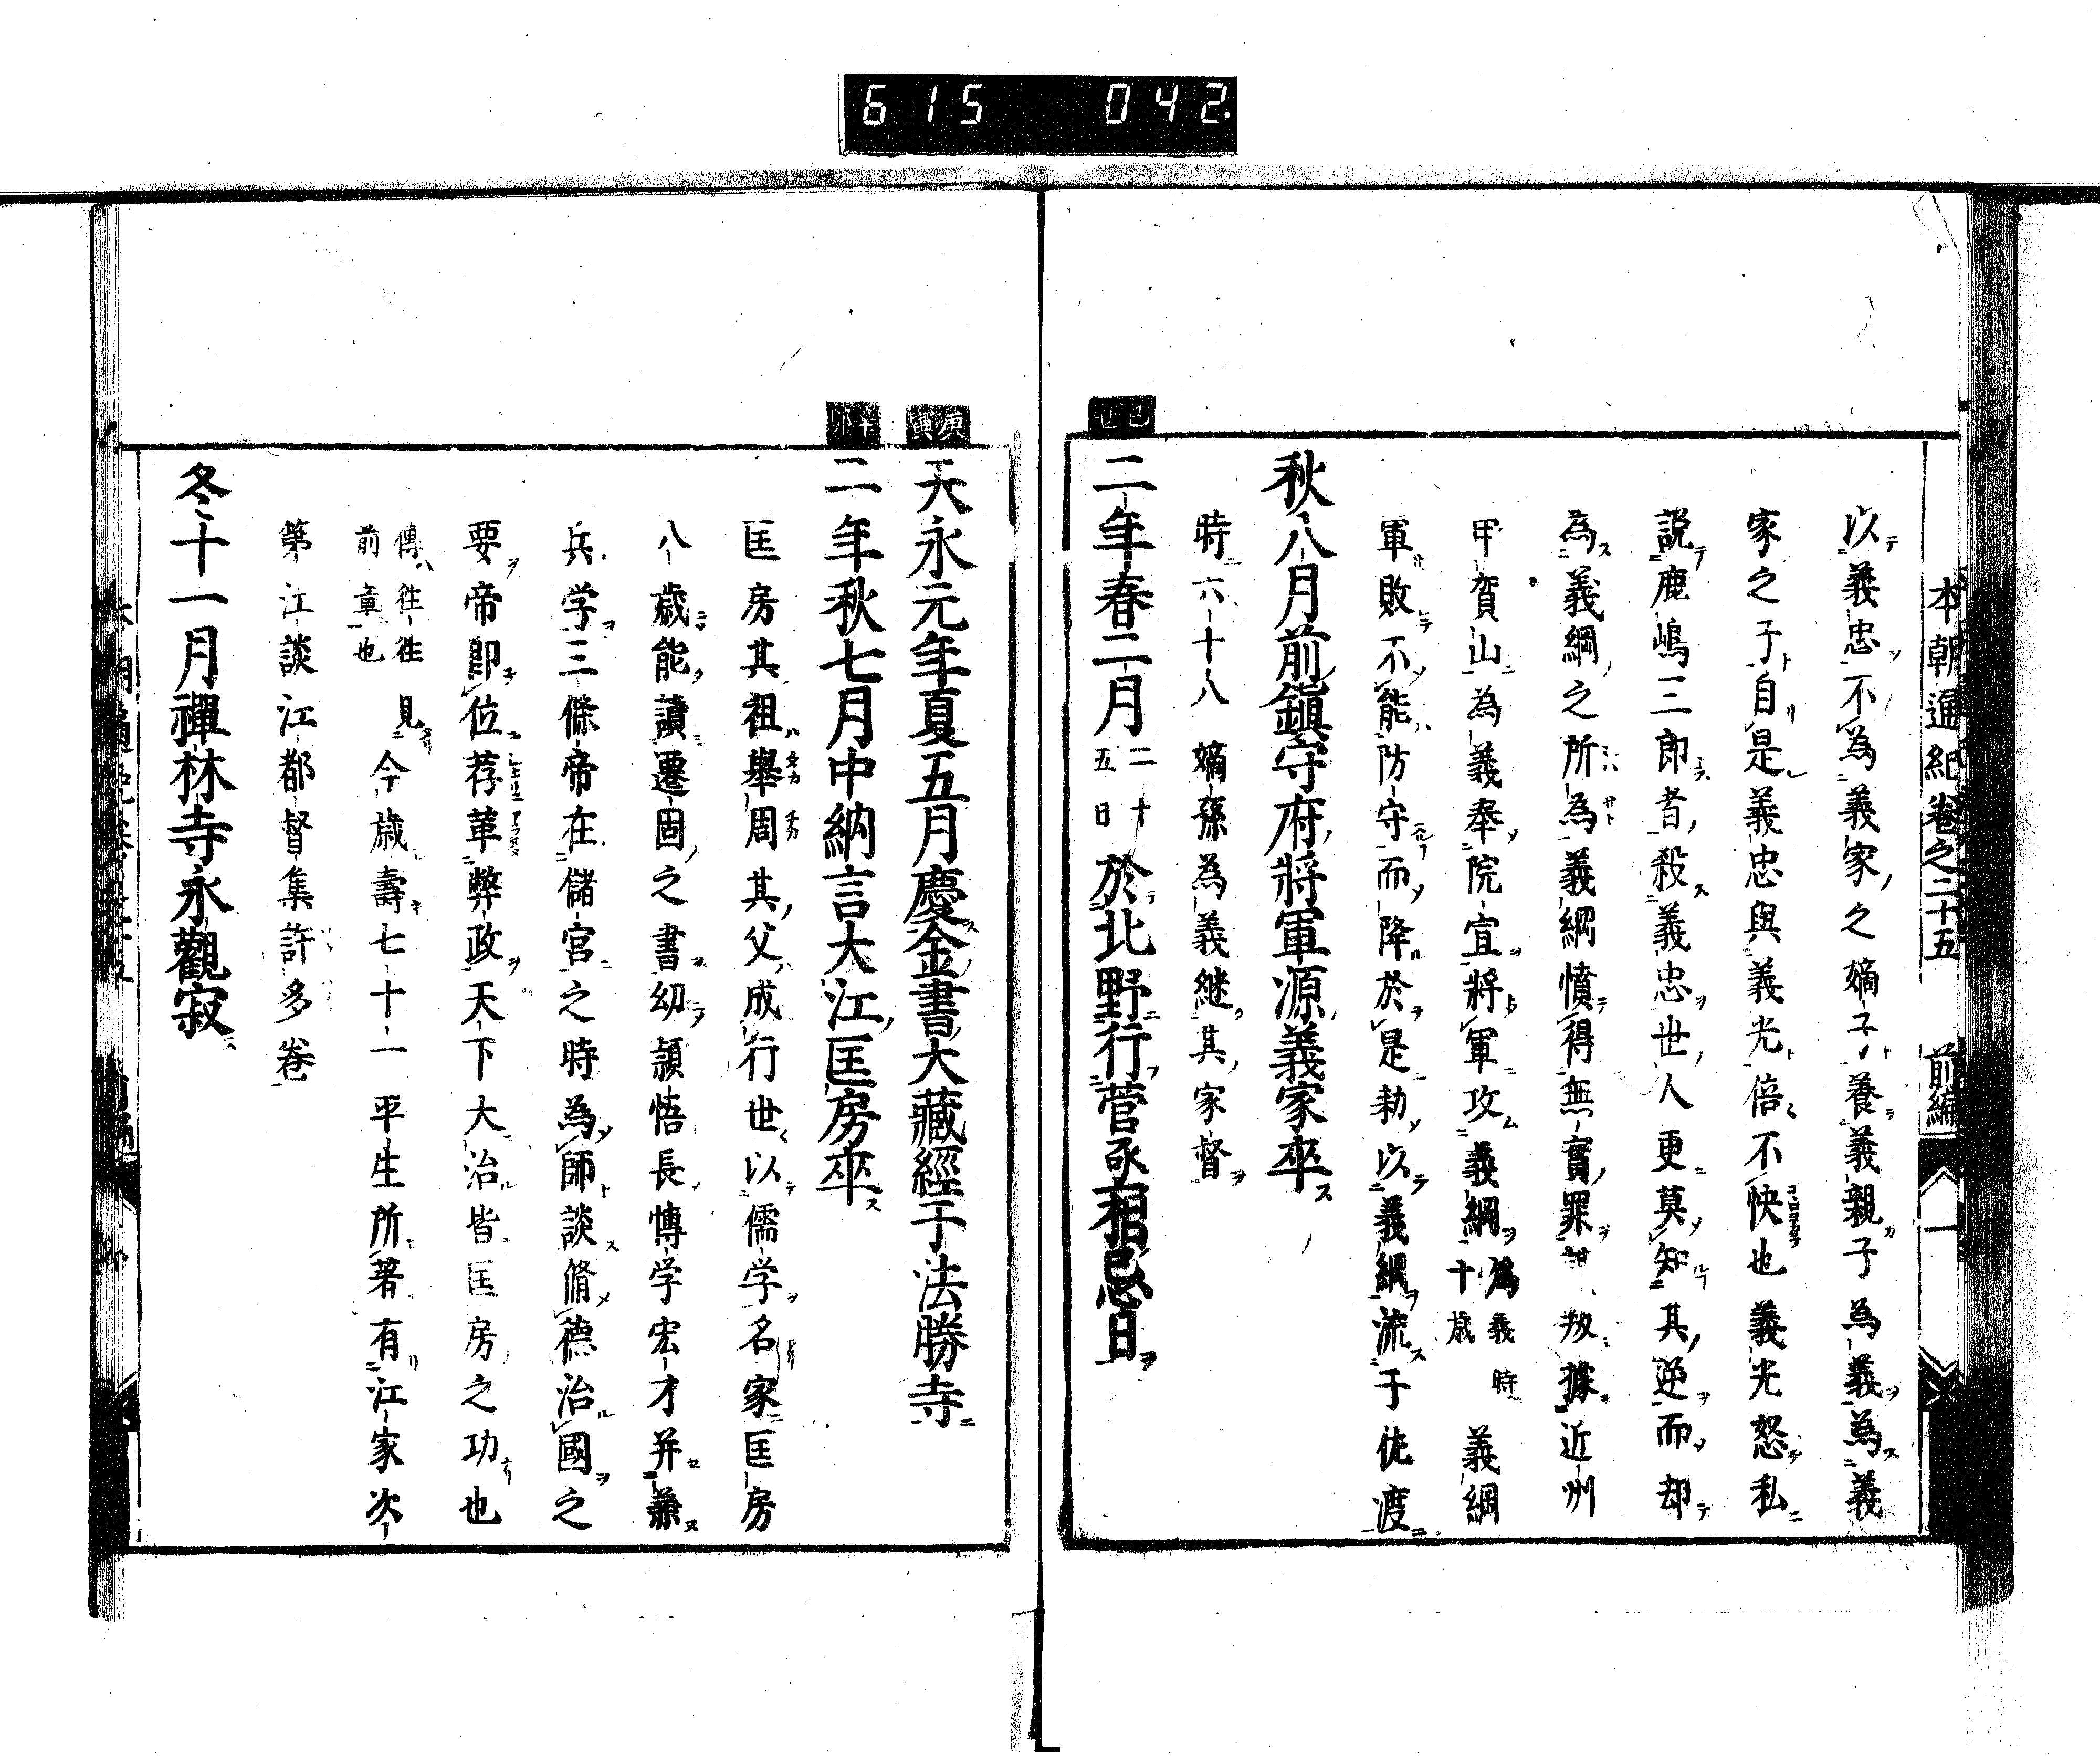 615 042
本朝通紀卷之二十五 前編 一
以義忠不為義家之嫡子養義親子為義為義
家之子自是義忠與義光倍不快也義光怒私
説鹿嶋三郎者殺義忠世人更莫知其逆而却
為義綱之所為義綱憤得無實罪叛據近州
甲賀山為義奉院宣將軍攻義綱為義時十歳義綱
軍敗不能防守而降於是勅以義綱流于佐渡
秋八月前鎮守府將軍源義家卒
時六十八嫡孫為義継其家督
己丑
二年春二月二十五日於北野行菅丞相忌日
庚寅
天永元年夏五月慶金書大藏經于法勝寺
辛卯
二年秋七月中納言大江匡房卒
匡房其祖舉周其父成行世以儒学名家匡房
八歳能讀遷固之書幼頴悟長博学宏才并兼
兵学三條帝在儲宮之時為師談脩德治國之
要帝即位荐革弊政天下大治皆匡房之功也
傳往往見前章也今歳壽七十一平生所著有江家次
第江談江都督集許多卷
冬十一月禪林寺永觀寂